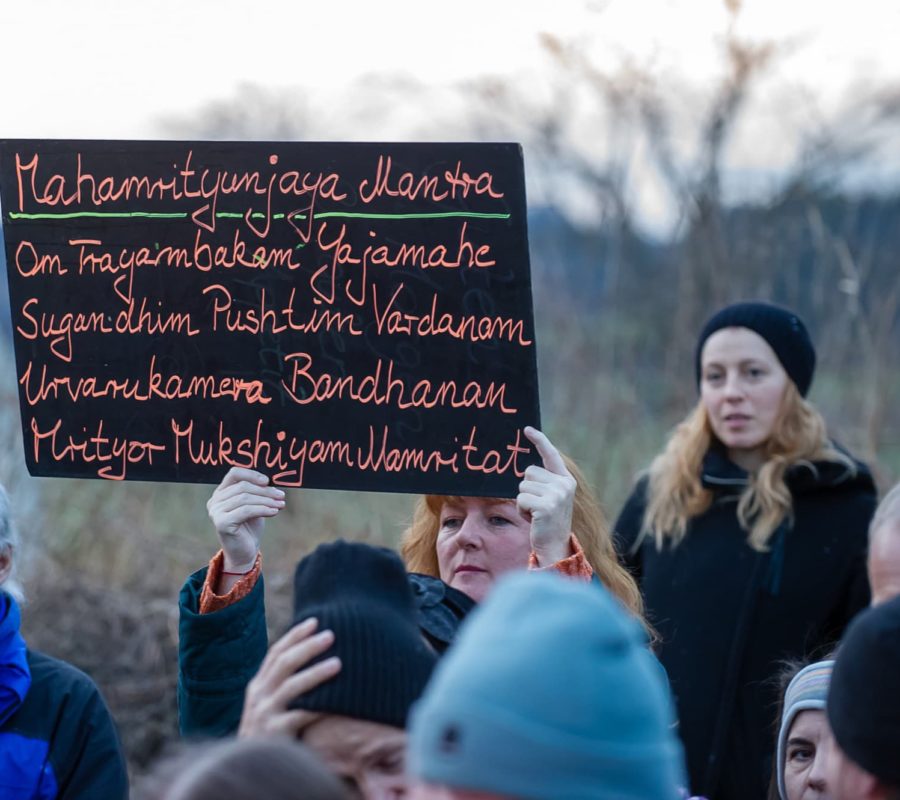 Mahamrityunjaya Mantra
Om Trayambakam Yajamahe
Sugandhim Pushtim Vardanam
Urvarukamera Bandhanan
Mrityor Mukshiyam Mamritat